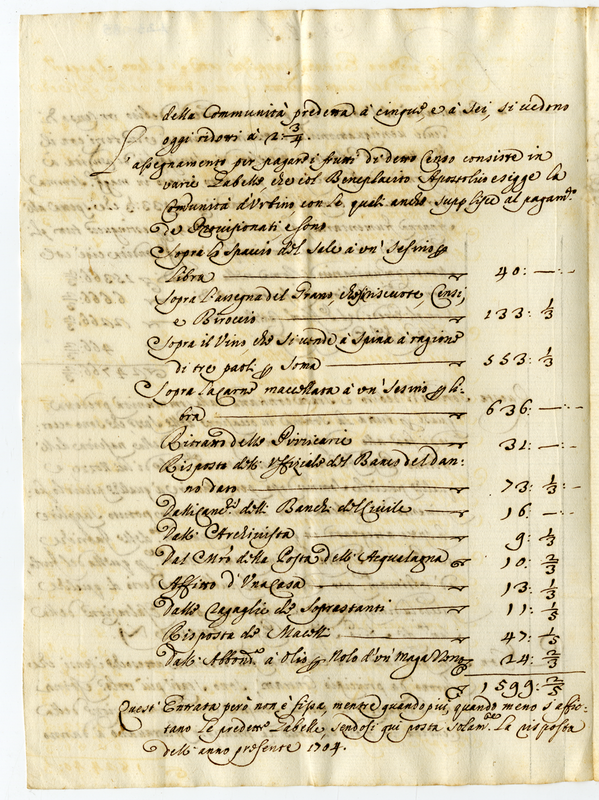 della Communità predetta à cinque, e à sei, si uedono
oggi ridotti à 2: 3/4.
L'assegnamento per pagare i frutti di detto Censo consiste in
varie Gabelle, che col Beneplacito Apostolico esigge la
Comunità d'Urbino con le quali anche supplisce al pagam.to
de Provisionati e sono
Sopra lo spaccio del sale à un' sesino p
libra 40: — : -
Sopra l'assegna del Grano, Censi,
e Biroccio 133: 1/3
Sopra il Vino, che si uende à spina à ragione
di tre paoli p soma 553: 1/3
Sopra la carne macellata à un' sesino p li-
bra 636: — : -
Ritratto delle 31: — : -
Risposta dell' Uffiziale del Banco del Dan-
no dato 73: 1/3 : -
Dalli Banchi del Ciuile 16: —
Dall' Archiuista 9: 1/3
Dal Mro della Posta dell' Acqualagna 10: 2/3
Affitto d'Una casa 13: 1/3
Dalle de Soprastanti 11: 1/5
Risposta de Macelli 47: 1/5
Dall' à Olio p Nolo d'un Magazzeno 24: 2/3
1599: 2/5
Quest' Entrata però non è fissa, mentre quando più, quando meno s'affit-
tano le predette Gabelle, sendosi qui posta solam.te la risposta
dell' anno presente 1704.